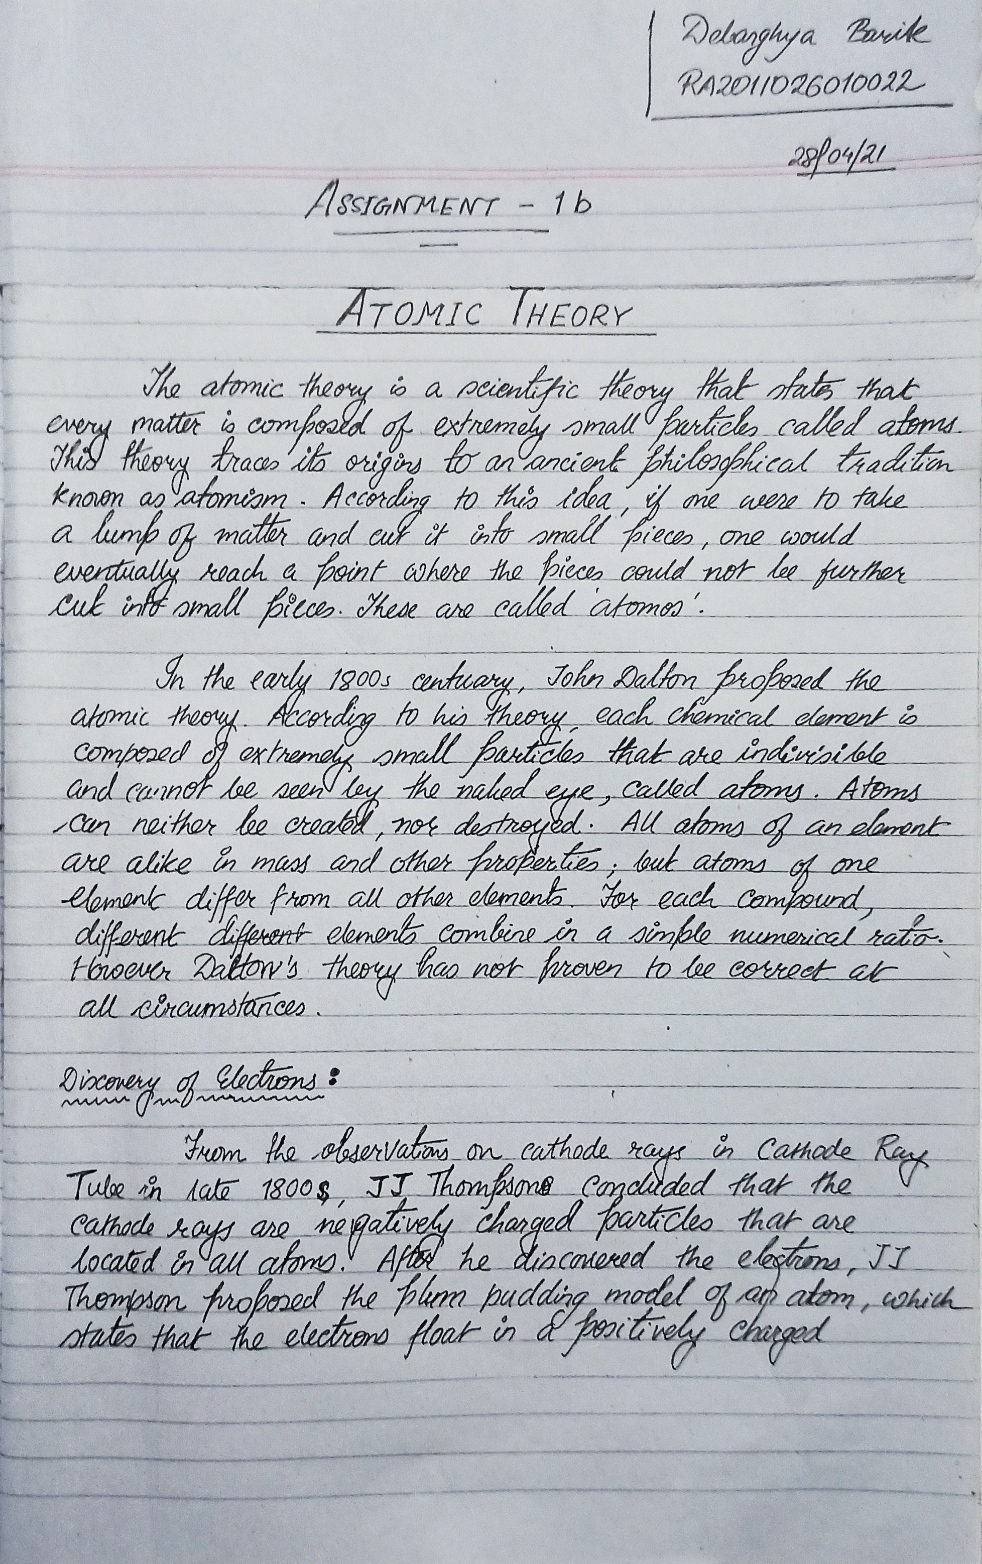 Debarghya Barik
RA2011026010022
28/04/21
ASSIGNMENT - 1b
ATOMIC THEORY
The atomic theory is a scientific theory that states that
every matter is composed of extremely small particles called atoms.
This theory traces its origins to an ancient philosophical tradition
known as atomism. According to this idea, if one were to take
a lump of matter and cut it into small pieces, one would
eventually reach a point where the pieces could not be further
cut into small pieces. These are called 'atomos'.
In the early 1800s centuary, John Dalton proposed the
atomic theory. According to his theory, each chemical element is
composed of extremely small particles that are indivisible
and cannot be seen by the naked eye, called atoms. Atoms
can neither be created, nor destroyed. All atoms of an element
are alike in mass and other properties; but atoms of one
element differ from all other elements. For each compound,
different different elements combine in a simple numerical ratio.
However Dalton's theory has not proven to be correct at
all circumstances.
Discovery of Electrons:
From the observations on cathode rays in Cathode Ray
Tube in late 1800s, JJ Thompson concluded that the
cathode rays are negatively charged particles that are
located in all atoms. After he discovered the electrons, JJ
Thompson proposed the plum pudding model of an atom, which
states that the electrons float in a positively charged